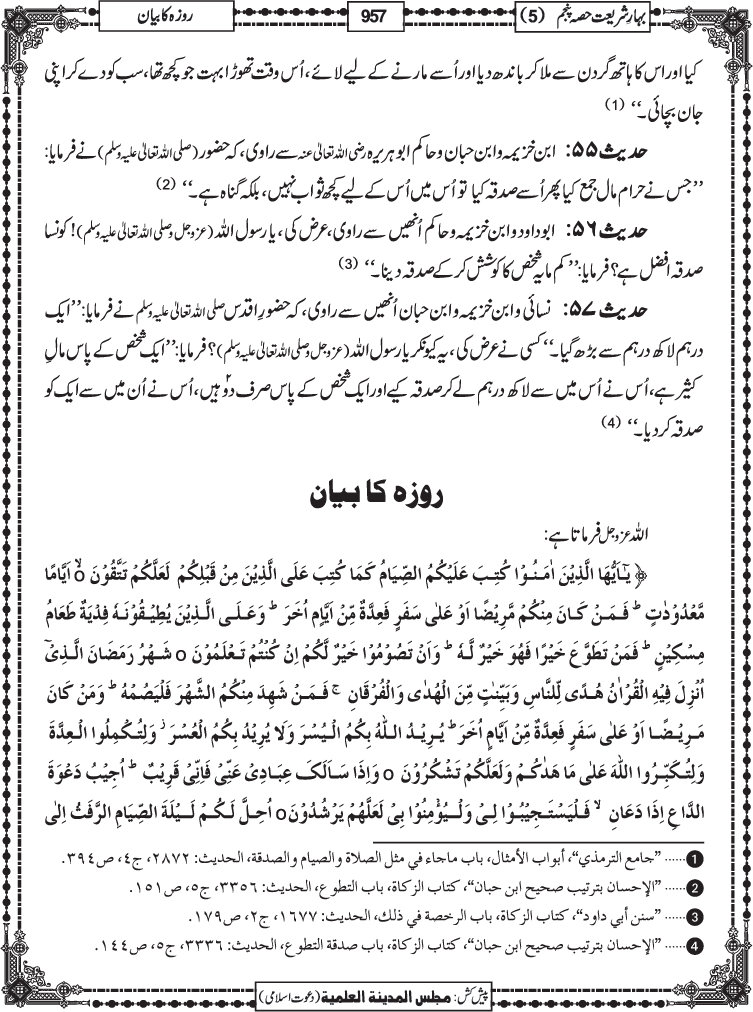 بہارِ شریعت حصہ پنجم (5)
957
روزہ کا بیان
کیا اور اس کا ہاتھ گردن سے ملا کر باندھ دیا اور اُسے مارنے کے لیے لائے، اُس وقت تھوڑا بہت جو کچھ تھا، سب کو دے کر اپنی
جان بچائی۔‘‘ (1)
حدیث ۵۵: ابن خزیمہ و ابن حبان و حاکم ابوہریرہ رضی اللہ تعالیٰ عنہ سے راوی، کہ حضور (صلی اللہ تعالیٰ علیہ وسلم) نے فرمایا:
’’جس نے حرام مال جمع کیا پھر اُسے صدقہ کیا تو اُس میں اُس کے لیے کچھ ثواب نہیں، بلکہ گناہ ہے۔‘‘ (2)
حدیث ۵۶: ابو داود و ابن خزیمہ و حاکم اُنھیں سے راوی، عرض کی، یا رسول اللہ (عزوجل و صلی اللہ تعالیٰ علیہ وسلم)! کونسا
صدقہ افضل ہے؟ فرمایا: ’’کم مایہ شخص کا کوشش کر کے صدقہ دینا۔‘‘ (3)
حدیث ۵۷: نسائی و ابن خزیمہ و ابن حبان اُنھیں سے راوی، کہ حضورِ اقدس صلی اللہ تعالیٰ علیہ وسلم نے فرمایا: ’’ایک
درہم لاکھ درہم سے بڑھ گیا۔‘‘ کسی نے عرض کی، یہ کیونکر یا رسول اللہ (عزوجل و صلی اللہ تعالیٰ علیہ وسلم)؟ فرمایا: ’’ایک شخص کے پاس مالِ
کثیر ہے، اُس نے اُس میں سے لاکھ درہم لے کر صدقہ کیے اور ایک شخص کے پاس صرف دو ہیں، اُس نے اُن میں سے ایک کو
صدقہ کر دیا۔‘‘ (4)
روزہ کا بیان
اللہ عزوجل فرماتا ہے:
﴿ يٰۤاَيُّهَا الَّذِيْنَ اٰمَنُوْا كُتِبَ عَلَيْكُمُ الصِّيَامُ كَمَا كُتِبَ عَلَى الَّذِيْنَ مِنْ قَبْلِكُمْ لَعَلَّكُمْ تَتَّقُوْنَ ۙo اَيَّامًا
مَّعْدُوْدٰتٍ ؕ فَمَنْ كَانَ مِنْكُمْ مَّرِيْضًا اَوْ عَلٰى سَفَرٍ فَعِدَّةٌ مِّنْ اَيَّامٍ اُخَرَ ؕ وَعَلَى الَّذِيْنَ يُطِيْقُوْنَهٗ فِدْيَةٌ طَعَامُ
مِسْكِيْنٍ ؕ فَمَنْ تَطَوَّعَ خَيْرًا فَهُوَ خَيْرٌ لَّهٗ ؕ وَاَنْ تَصُوْمُوْا خَيْرٌ لَّكُمْ اِنْ كُنْتُمْ تَعْلَمُوْنَ o شَهْرُ رَمَضَانَ الَّذِيْۤ
اُنْزِلَ فِيْهِ الْقُرْاٰنُ هُدًى لِّلنَّاسِ وَبَيِّنٰتٍ مِّنَ الْهُدٰى وَالْفُرْقَانِ ۚ فَمَنْ شَهِدَ مِنْكُمُ الشَّهْرَ فَلْيَصُمْهُ ؕ وَمَنْ كَانَ
مَرِيْضًا اَوْ عَلٰى سَفَرٍ فَعِدَّةٌ مِّنْ اَيَّامٍ اُخَرَ ؕ يُرِيْدُ اللّٰهُ بِكُمُ الْيُسْرَ وَلَا يُرِيْدُ بِكُمُ الْعُسْرَ ز وَلِتُكْمِلُوا الْعِدَّةَ
وَلِتُكَبِّرُوا اللّٰهَ عَلٰى مَا هَدٰكُمْ وَلَعَلَّكُمْ تَشْكُرُوْنَ o وَاِذَا سَاَلَكَ عِبَادِيْ عَنِّيْ فَاِنِّيْ قَرِيْبٌ ؕ اُجِيْبُ دَعْوَةَ
الدَّاعِ اِذَا دَعَانِ ۙ فَلْيَسْتَجِيْبُوْا لِيْ وَلْيُؤْمِنُوْا بِيْ لَعَلَّهُمْ يَرْشُدُوْنَ o اُحِلَّ لَكُمْ لَيْلَةَ الصِّيَامِ الرَّفَثُ اِلٰى
1 ...... ”جامع الترمذي“، أبواب الأمثال، باب ماجاء في مثل الصلاة والصيام والصدقة، الحديث: ٢٨٧٢، ج٤، ص٣٩٤.
2 ...... ”الإحسان بترتيب صحيح ابن حبان“، كتاب الزكاة، باب التطوع، الحديث: ٣٣٥٦، ج٥، ص١٥١.
3 ...... ”سنن أبي داود“، كتاب الزكاة، باب الرخصة في ذلك، الحديث: ١٦٧٧، ج٢، ص١٧٩.
4 ...... ”الإحسان بترتيب صحيح ابن حبان“، كتاب الزكاة، باب صدقة التطوع، الحديث: ٣٣٣٦، ج٥، ص١٤٤.
پیش کش: مجلس المدینة العلمیة (دعوت اسلامی)